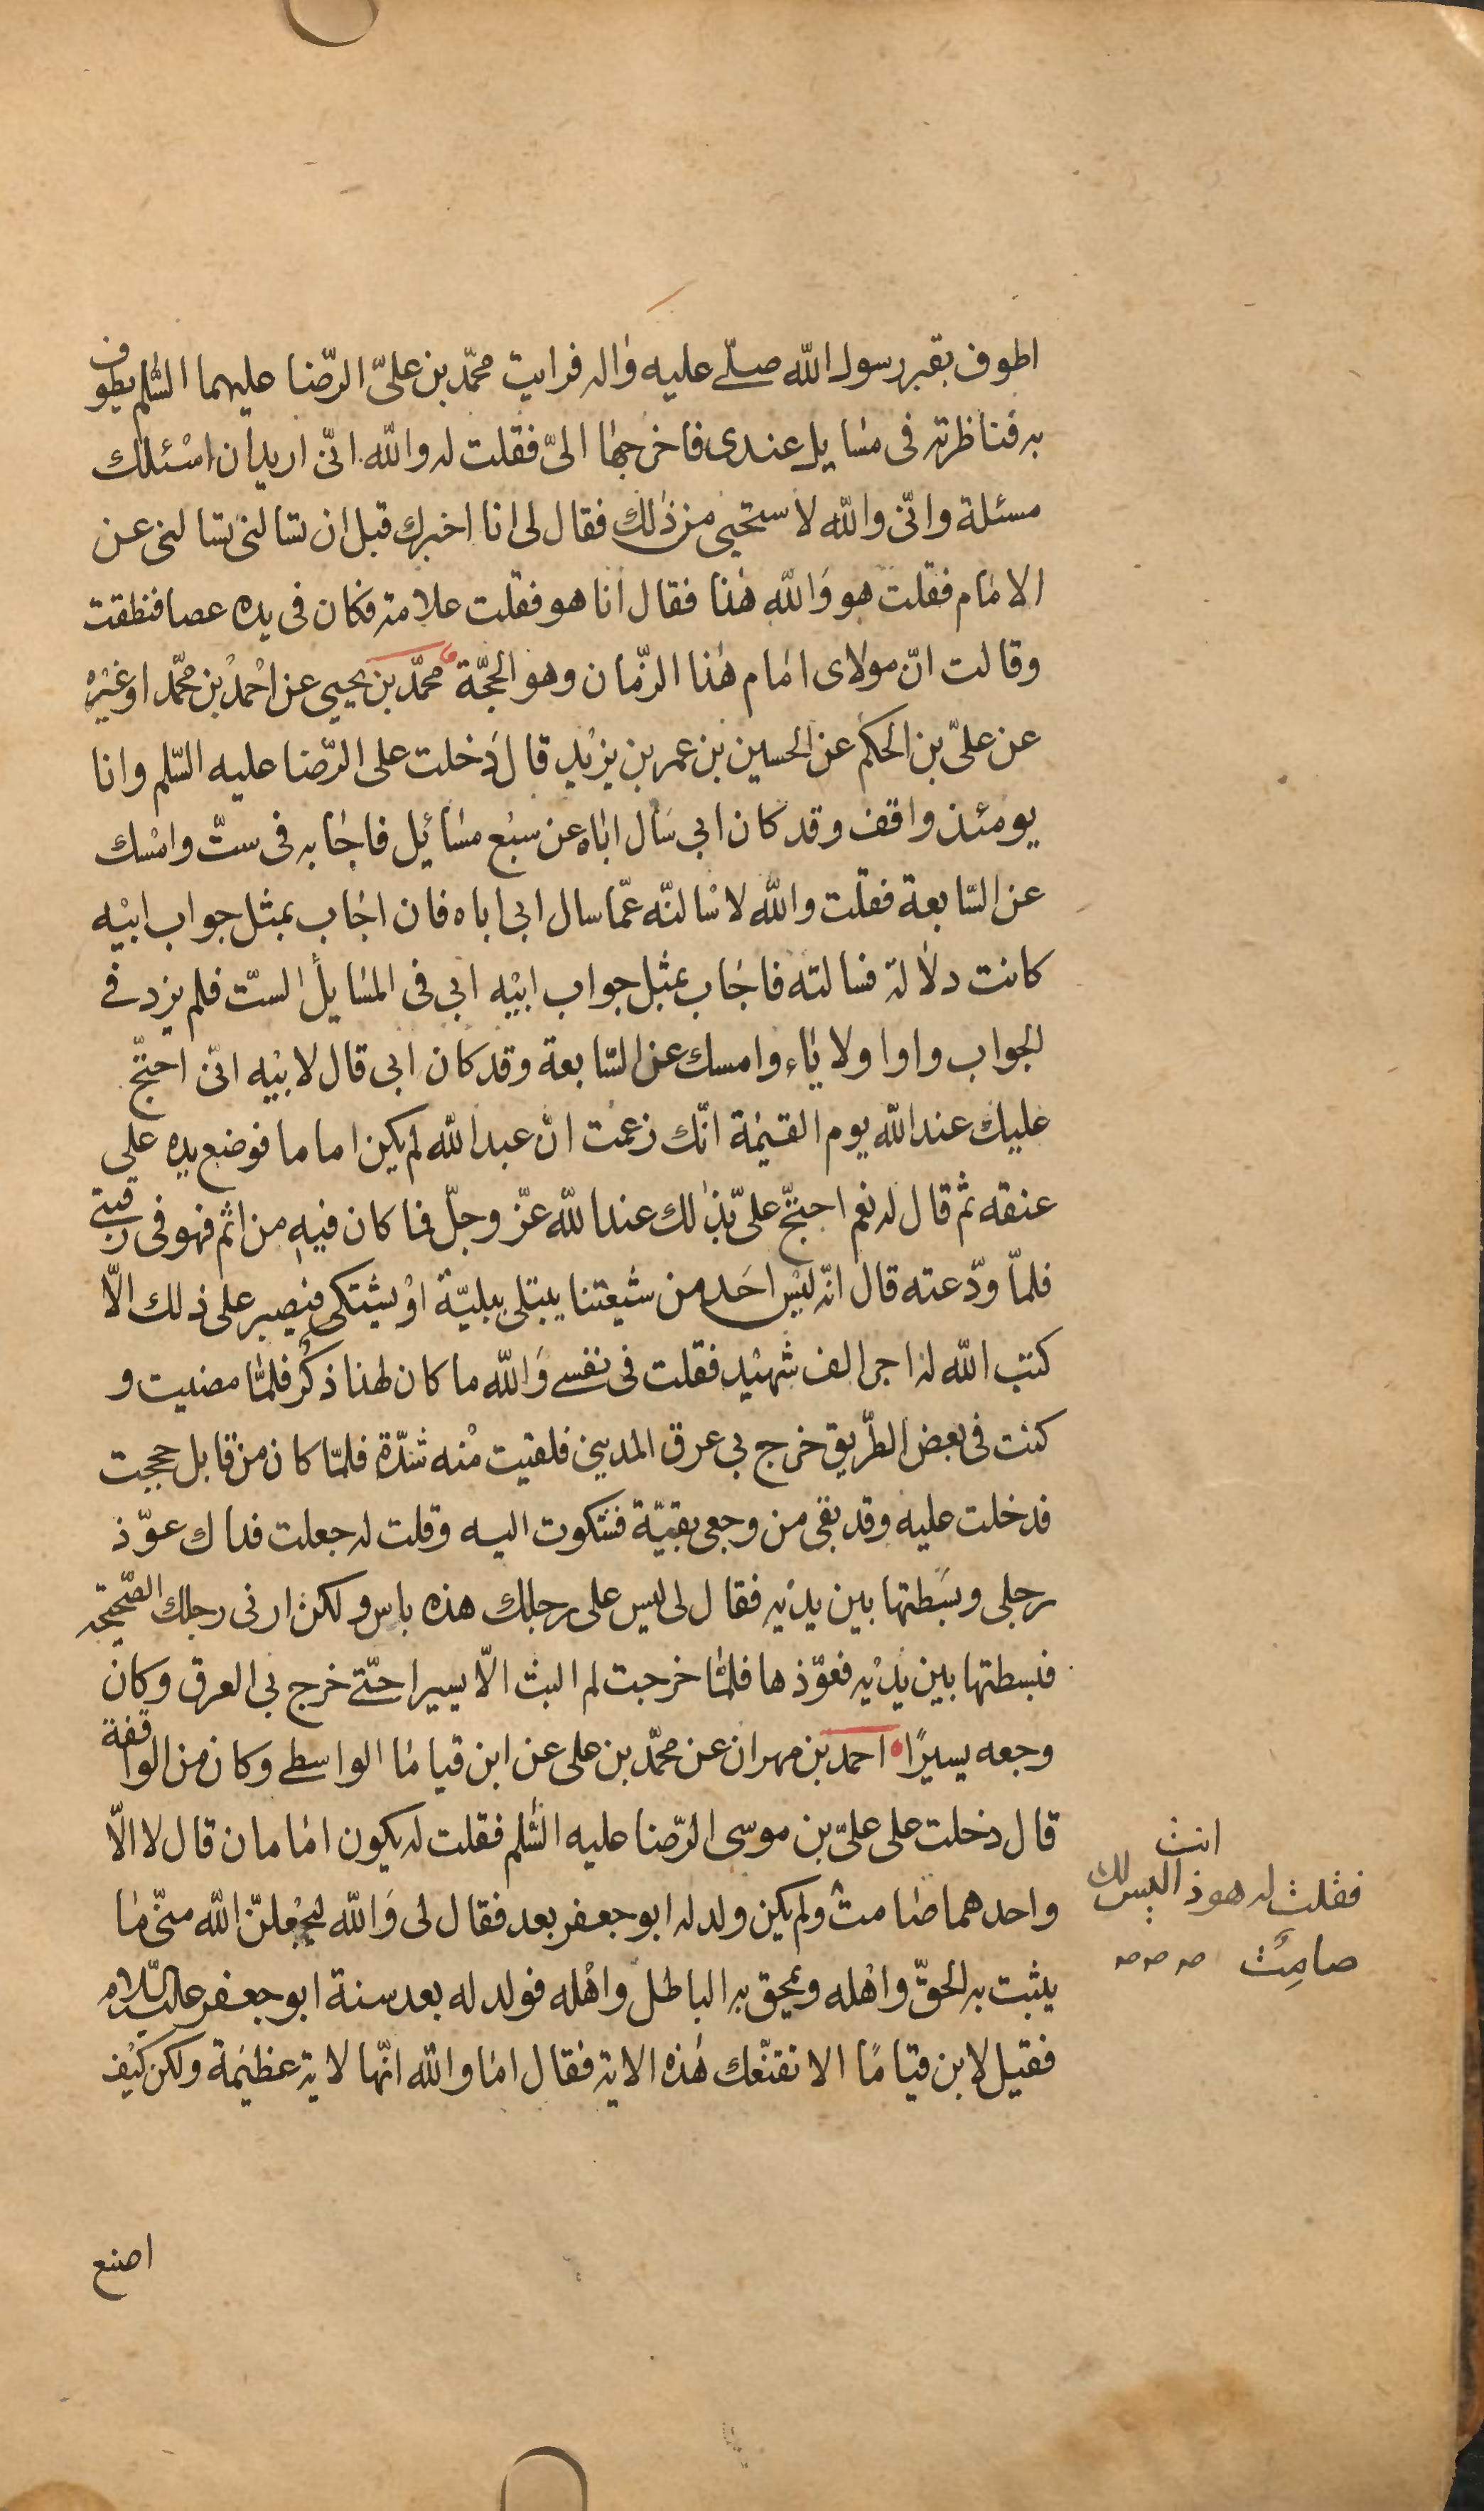 اطوف بقبر رسول الله صلّے عليه واله فرايت محمّد بن علىّ الرّضا عليهما السّلم يطوف
به فناظرته فى مسايل عندى فاخرجها الىّ فقلت له والله انّى اريد ان اسئلك
مسئلة وانّى والله لاستحيى من ذٰلك فقال لى انا اخبرك قبل ان تسالنى تسالنى عن
الامام فقلت هو والله هٰذا فقال انا هو فقلت علامة فكان فى يده عصا فنطقت
وقالت انّ مولاى امام هٰذا الزّمان وهو الحجّة محمّد بن يحيى عن احمد بن محمّد او غيره
عن علىّ بن الحكم عن الحسين بن عمر بن يزيد قال دخلت على الرّضا عليه السّلم وانا
يومئذ واقف وقد كان ابى سال اباه عن سبع مسائيل فاجابه فى ستّ وامسك
عن السّابعة فقلت والله لاسالنّه عمّا سال ابى اباه فان اجاب بمثل جواب ابيه
كانت دلالة فسالته فاجاب بمثل جواب ابيه ابى فى المسايل الستّ فلم يزد فے
الجواب واوا ولا ياء وامسك عن السّابعة وقد كان ابى قال لابيه انّى احتجّ
عليك عند الله يوم القيمة انّك زعمت انّ عبد الله لم يكن اماما فوضع يده على
عنقه ثم قال له نعم احتجّ علىّ بذٰلك عند الله عزّ وجلّ فما كان فيه من اثم فهو فى رقبتے
فلمّا ودّعته قال انّه ليس احد من شيعتنا يبتلى ببليّة او يشتكى فيصبر على ذلك الّا
كتب الله له اجر الف شهيد فقلت فى نفسے والله ما كان لهٰذا ذكر فلمّا مضيت و
كنت فى بعض الطّريق خرج بى عرق المدينى فلقيت منه شدّة فلمّا كان من قابل حججت
فدخلت عليه وقد بقى من وجعى بقيّة فشكوت اليه وقلت له جعلت فداك عوّذ
رجلى وبسطتها بين يديه فقال لى ليس على رجلك هذه باس ولكن ارنى رجلك الصّحيحة
فبسطتها بين يديه فعوّذها فلمّا خرجت لم البث الّا يسيرا حتّے خرج بى العرق وكان
وجعه يسيرًا احمد بن مهران عن محمّد بن على عن ابن قياما الواسطے وكان من الواقفة
قال دخلت على علىّ بن موسى الرّضا عليه السّلم فقلت له يكون امامان قال لا الّا
واحدهما صامت ولم يكن ولد له ابو جعفر بعد فقال لى والله ليجعلنّ الله منّى ما
يثبت به الحقّ واهله ويمحق به الباطل واهله فولد له بعد سنة ابو جعفر عليه السّلام
فقيل لابن قياما الا تقنّعك هٰذه الاية فقال اما والله انّها لاية عظيمة ولكن كيف
اصنع
فقلت له هوذ انت اليس لك
صامت